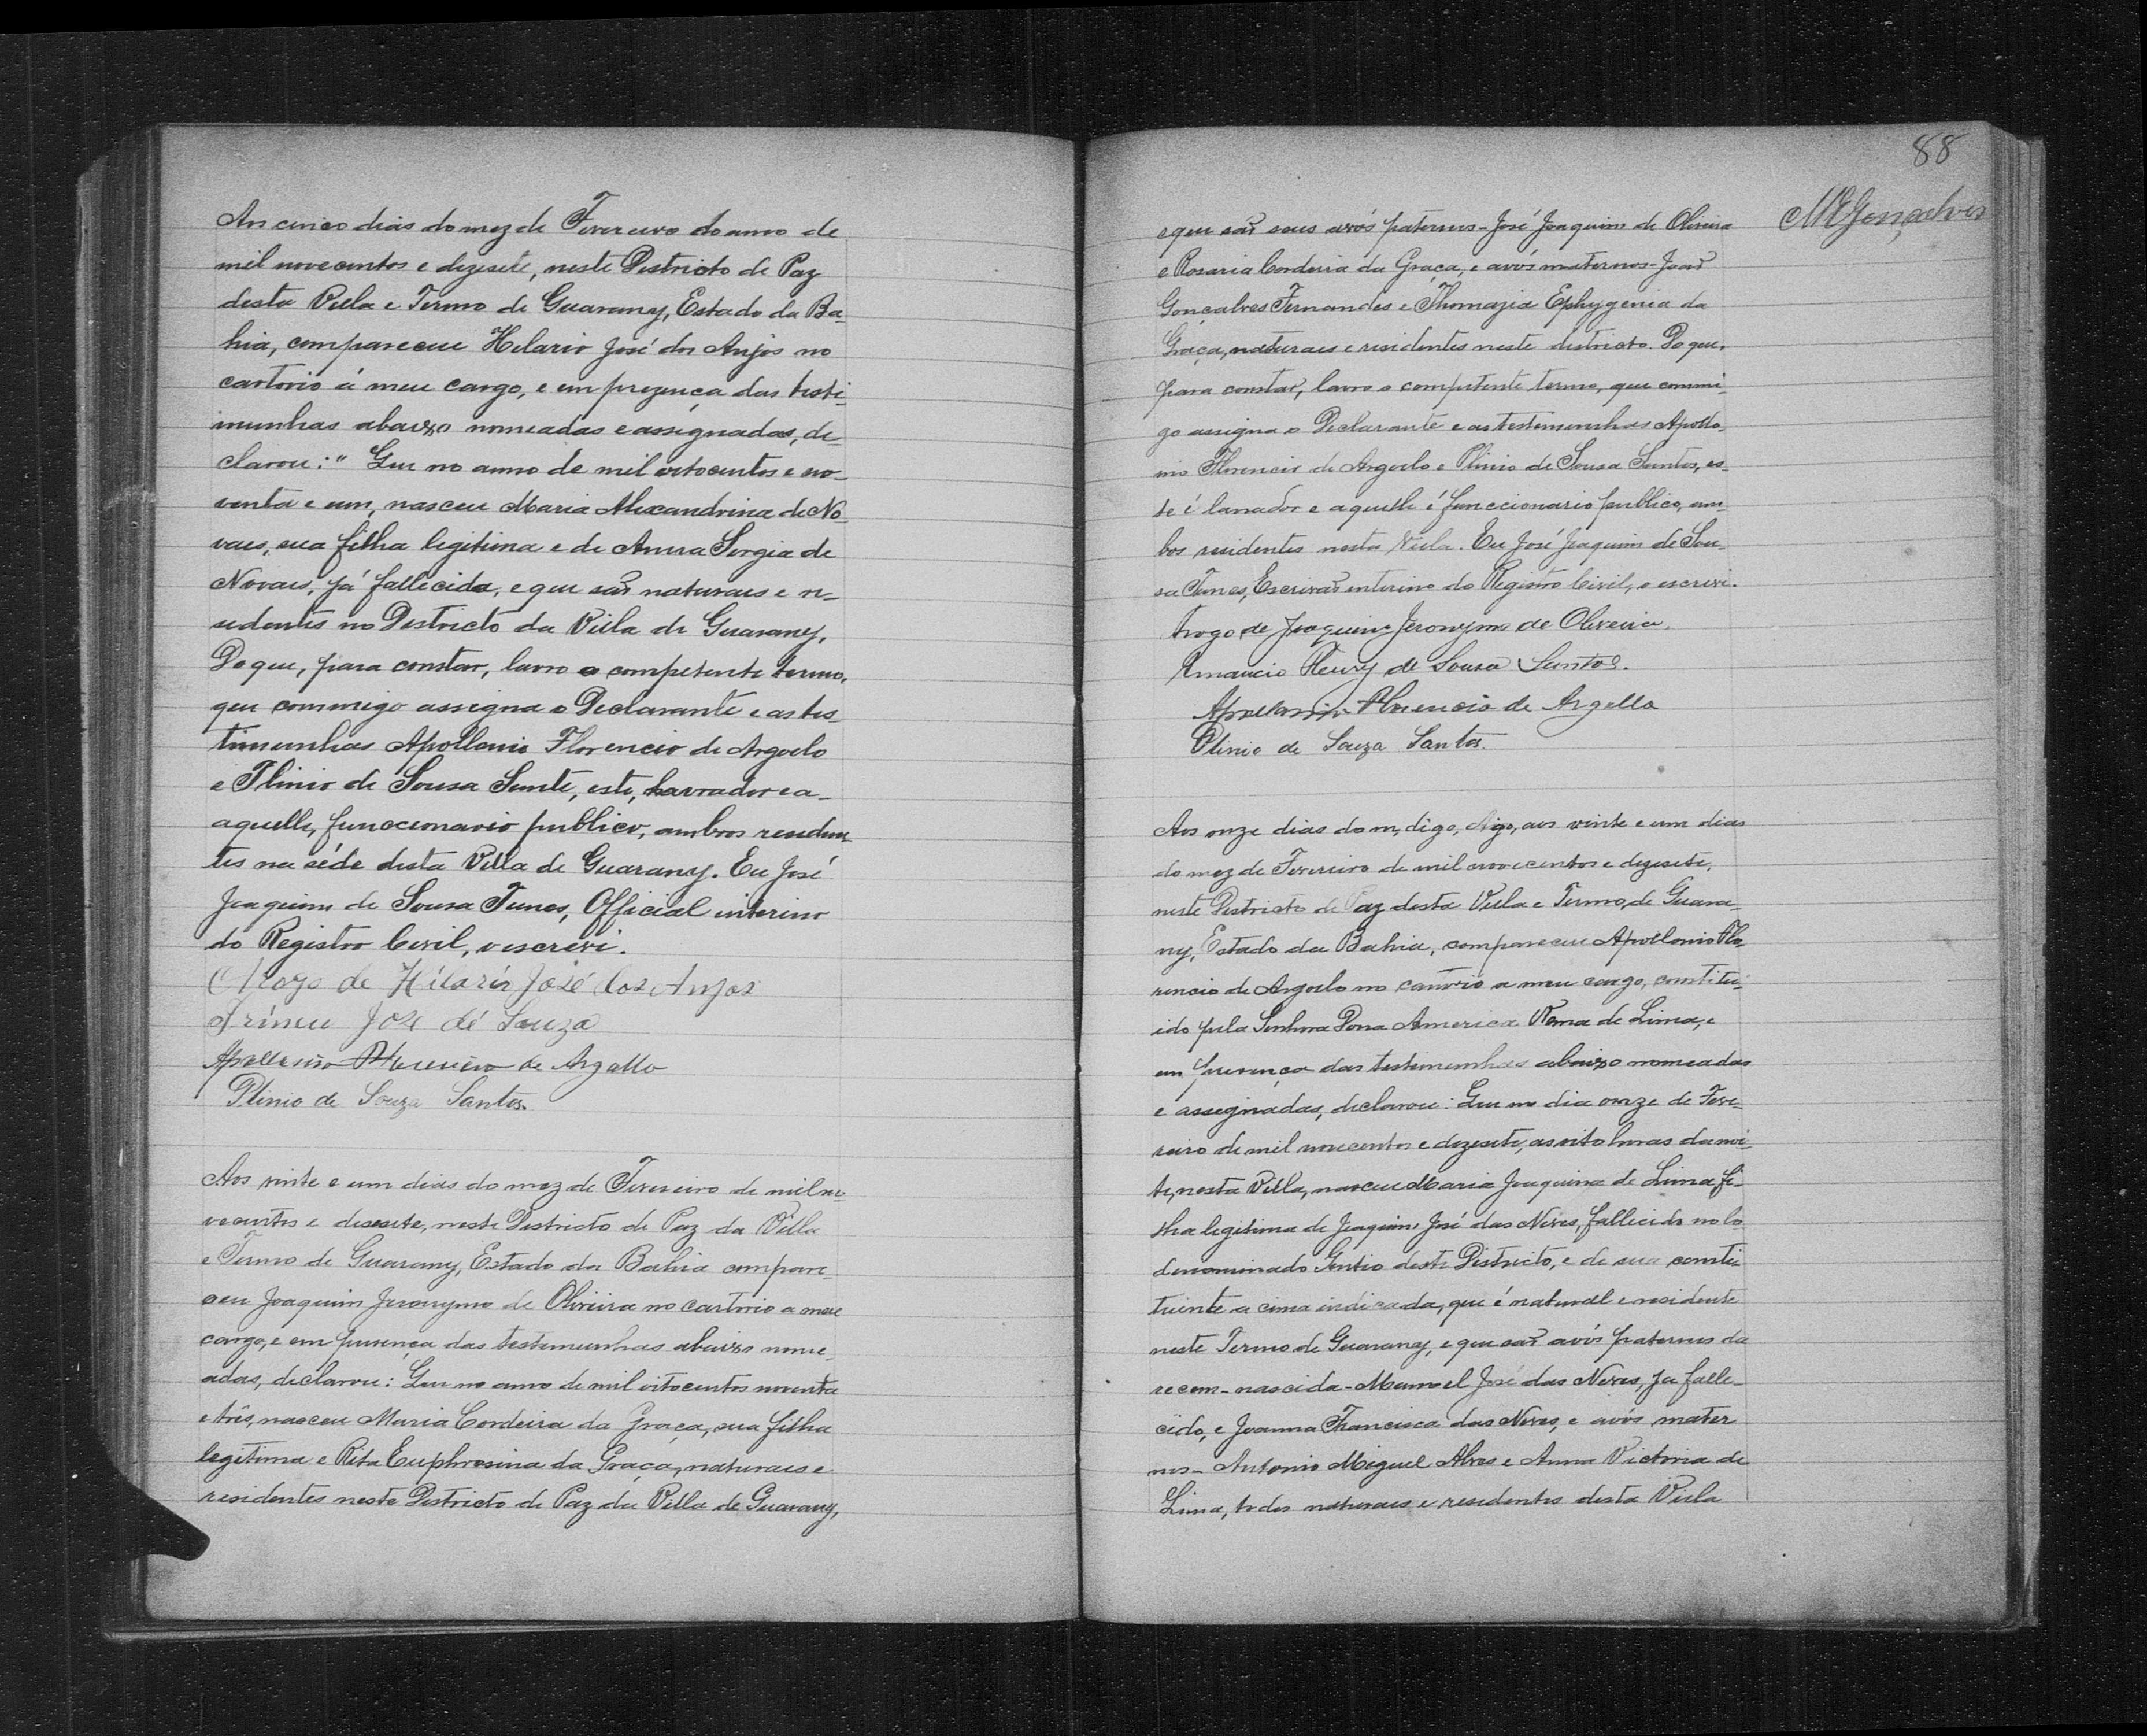 Aos cinco dias do mez de Fevereiro do anno de
mil novecentos e dezesete, neste Districto de Paz
desta Villa e Termo de Guarany, Estado da Ba-
hia, compareceu Hilario José dos Anjos no
cartorio á meu cargo, e em prezença das testi-
munhas abaixo nomeadas e assignadas, de-
clarou: " Que no anno de mil oitocentos e no-
venta e um, nasceu Maria Alexandrina de No-
vaes, sua filha legitima e de Anna Sergia de
Novaes, já fallecida, e que são naturaes e re-
sidentes no Districto da Villa de Guarany,
Do que, para constar, lavro o competente termo,
que commigo assigna o Declarante e as tes-
timunhas Apollonio Florencio de Argollo
e Plinio de Sousa Santo, este, lavrador e a-
aquelle, funccionario publico, ambos residen-
tes na séde desta Villa de Guarany. Eu José
Joaquim de Sousa Tunes, Official interino
do Registro Civil, o escrevi.
A rogo de Hilario José dos Anjos
Irineu José de Souza
Apollonio Florencio de Argollo
Plinio de Souza Santos.
Aos vinte e um dias do mez de Fevereiro de mil no-
vecentos e desesete, neste Districto de Paz da Villa
e Termo de Guarany, Estado da Bahia compare-
ceu Joaquim Jeronymo de Oliveira no cartorio a meu
cargo, e em presença das testemunhas abaixo nome-
adas, declarou: Que no anno de mil oitocentos noventa
e três, nasceu Maria Cordeira da Graça, sua filha
legitima e Rita Euphrosina da Graça, naturaes e
residentes neste Districto de Paz da Villa de Guarany,
88
MEGonçalves
e que são seus avós paternos - José Joaquim de Oliveira
e Rosaria Cordeira da Graça, e avós maternos - João
Gonçalves Fernandes e Thomazia Ephygenia da
Graça, naturaes e residentes neste districto. Do que,
para constar, lavro o competente termo, que commi-
go assigna o Declarante e as testemunhas Apollo-
nio Florencio de Argollo e Plinio de Sousa Santos, es-
te é lavrador e aquelle é funccionario publico, am-
bos residentes nesta Villa. Eu José Joaquim de Sou-
sa Tunes, Escrivão interino do Registro Civil, o escrevi.
A rogo de Joaquim Jeronymo de Oliveira,
Amancio Fleury de Sousa Santos.
Apollonio Florencio de Argollo
Plinio de Souza Santos.
Aos onze dias do m, digo, digo, aos vinte e um dias
do mez de Fevereiro de mil novecentos e dezesete,
neste Districto de Paz desta Villa e Termo de Guara-
ny, Estado da Bahia, compareceu Apollonio Flo-
rencio de Argollo no cartorio a meu cargo, constitu-
ido pela Senhora Dona America de Lima, e
em presença das testemunhas abaixo nomeadas
e assignadas, declarou: Que no dia onze de Feve-
reiro de mil novecentos e dezesete, as oito horas da noi-
te, nesta Villa, nasceu Maria Joaquina de Lima fi-
lha legitima de Joaquim José das Neves, fallecido no lo
denominado Gentio deste Districto, e de sua consti-
tuinte a cima indicada, que é natural e residente
neste Termo de Guarany, e que são avós paternos da
recem-nascida - Manoel José das Neves, já falle-
cido, e Joanna Francisca das Neves, e avós mater
nos - Antonio Miguel Alves e Anna Victoria de
Lima, todos naturaes e residentes desta Villa